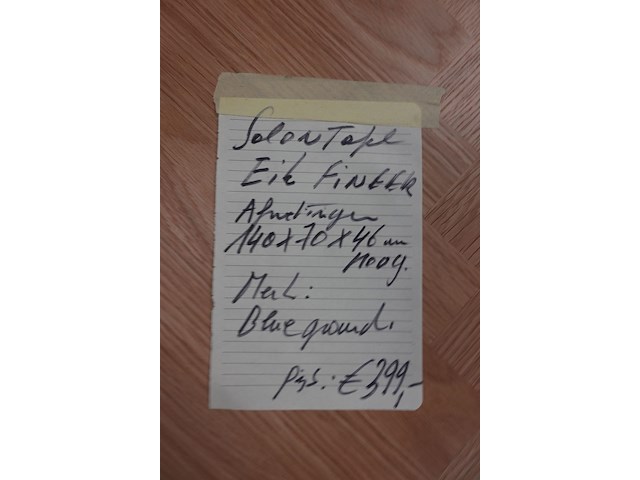 Salon Tafel
Eik FiNEER
Afmetingen
140 x 70 x 46 cm
Hoog.
Merk:
Blueground.
Prijs: € 399,-